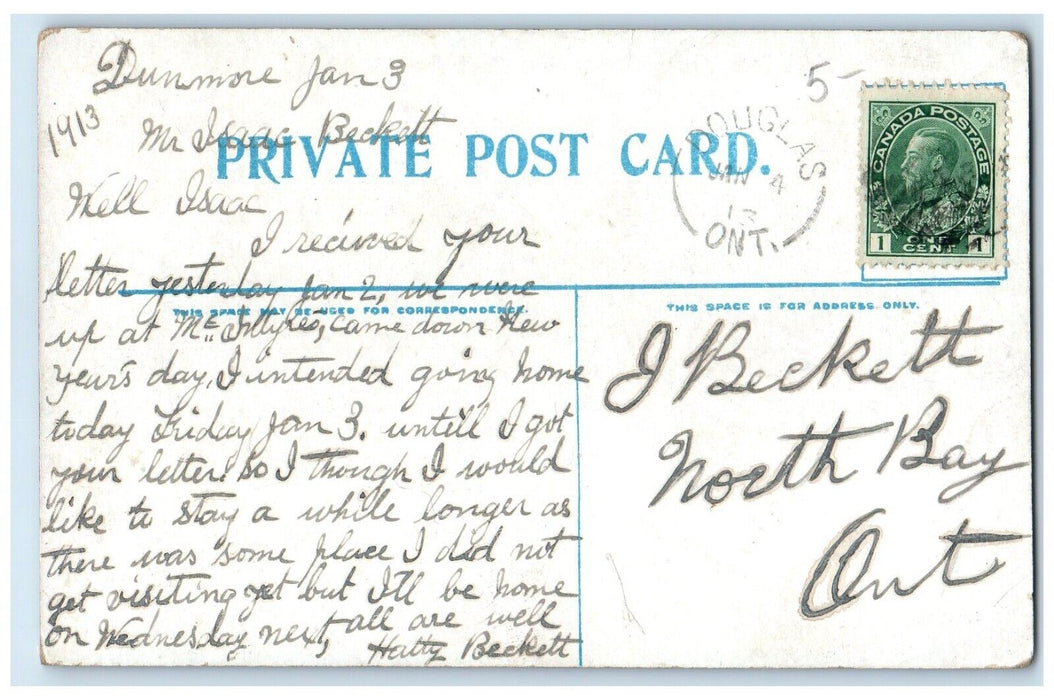 Dunmore Jan 3
1913
5-
Mr Isaac Beckett
PRIVATE POST CARD.
DOUGLAS
JAN 4
13
ONT.
CANADA POSTAGE
1 ONE CENT 1
Well Isaac
I recieved your
letter yesterday Jan 2, we were
THIS SPACE MAY BE USED FOR CORRESPONDENCE.
up at Mc came down New
year's day. I intended going home
today Friday Jan 3. untill I got
your letter. so I though I would
like to stay a while longer as
there was some place I did not
get visiting yet but I'll be home
on Wednesday next, all are well
Hatty Beckett
THIS SPACE IS FOR ADDRESS ONLY.
J Beckett
North Bay
Ont